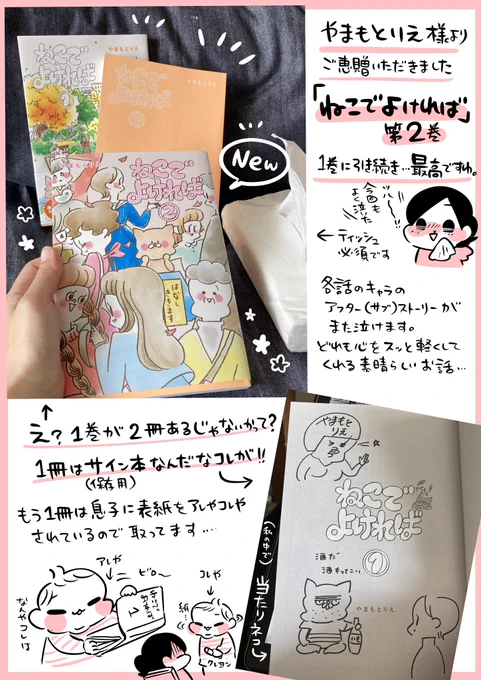 やまもとりえ様より
ご恵贈いただきました
「ねこでよければ」
第2巻
1巻に引き続き…最高ですわ。
ハー!!
今回も
よく泣いた
←ティッシュ
必須です
各話のキャラの
アフター(サブ)ストーリーが
また泣けます。
どれも心をスッと軽くして
くれる素晴らしいお話…
ねこで
よければ
1
やまもとりえ
ねこで
よければ
1
やまもとりえ
ねこで
よければ
2
はなし
ききます
New
え?1巻が2冊あるじゃないかって?
1冊はサイン本なんだなコレが!!
(保存用)
もう1冊は息子に表紙をアレやコレや
されているので取ってます…
アレや
ビロ〜
コレや
紙…
クレヨン
なんやコレは
1
(私の中で)
当たりネコ
やまもと
りえ
ねこで
よければ
酒だ
酒もってこい
1
やまもとりえ